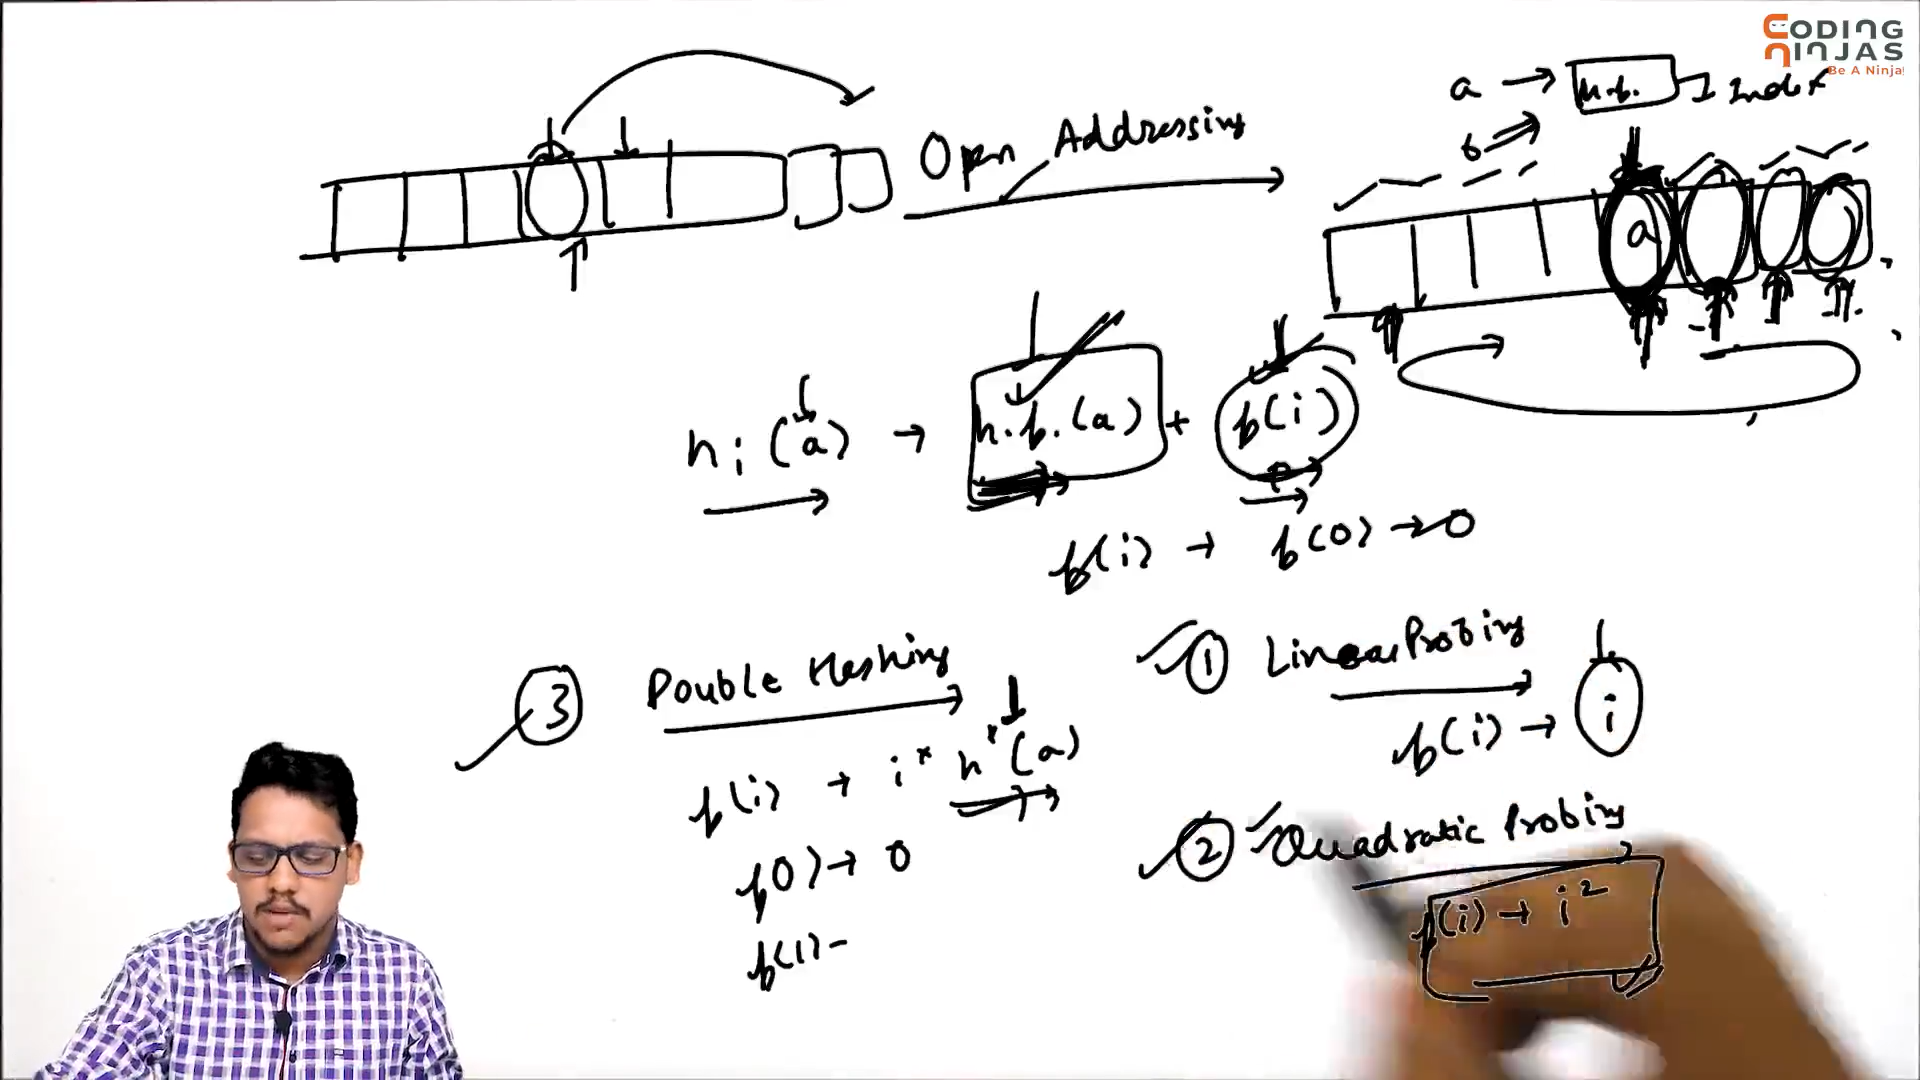 CODING
NINJAS
Be A Ninja!
a → h.f. Index
b
Open Addressing
a
hi (a) → h.f.(a) + f(i)
f(i) → f(0) → 0
① Linear Probing
f(i) → i
② Quadratic Probing
f(i) → i²
③ Double Hashing
f(i) → i * h'(a)
f(0) → 0
f(1) -